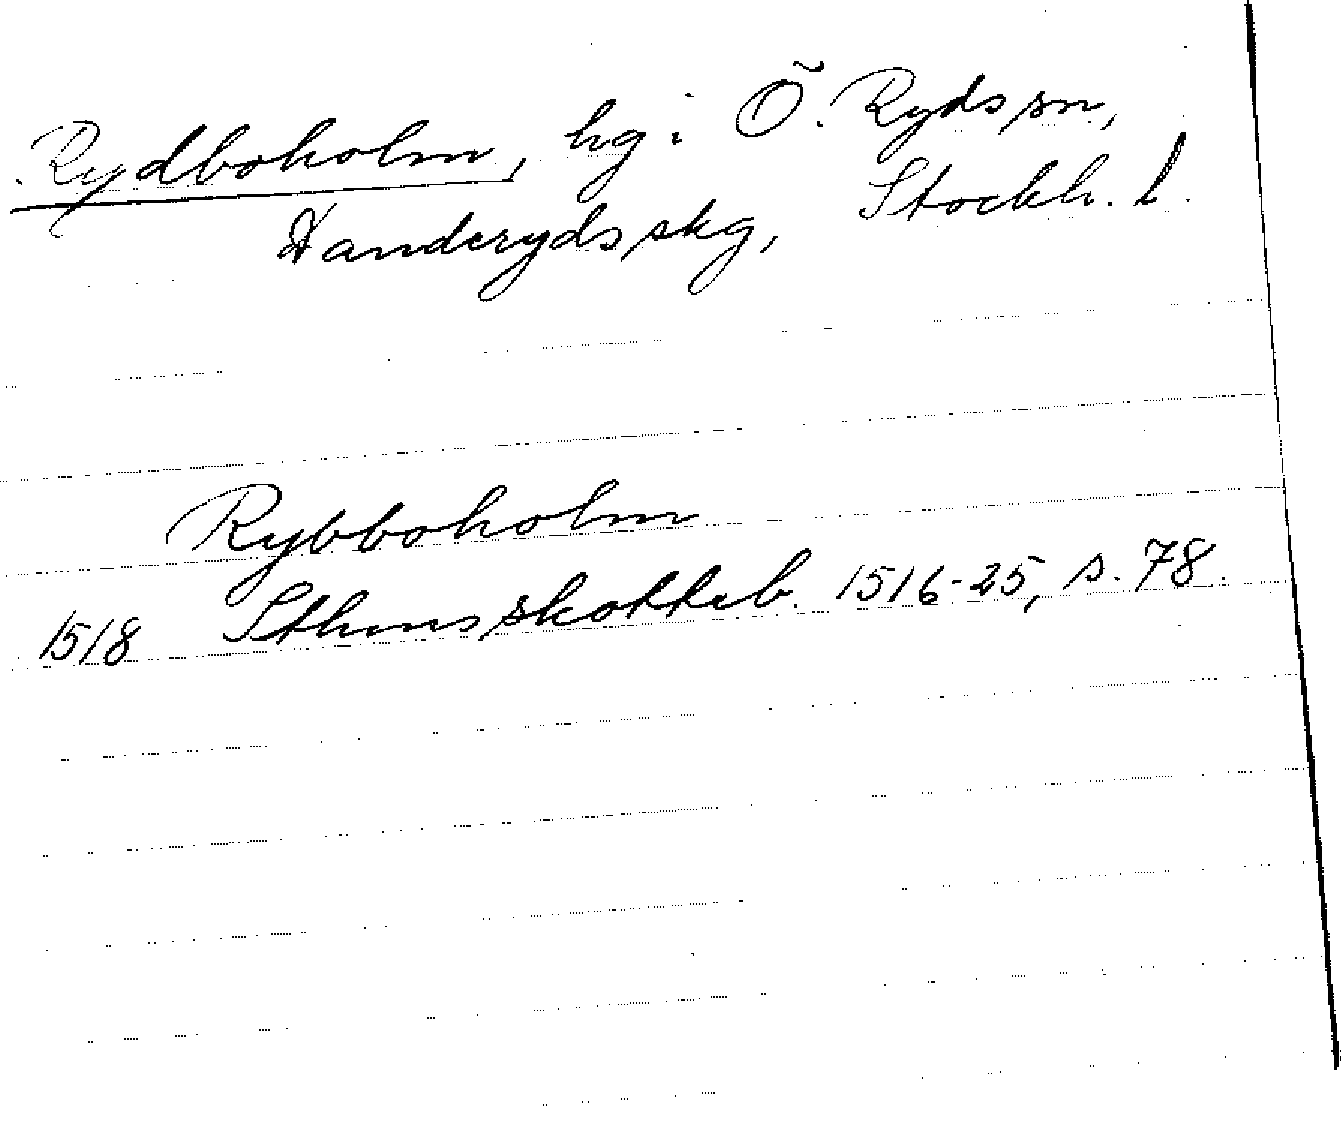 Rydboholm, hg i Ö. Ryds sn,
Danderyds skg, Stockh. l.
Rybboholm
1518 Sthms skotteb. 1516-25, s. 78.